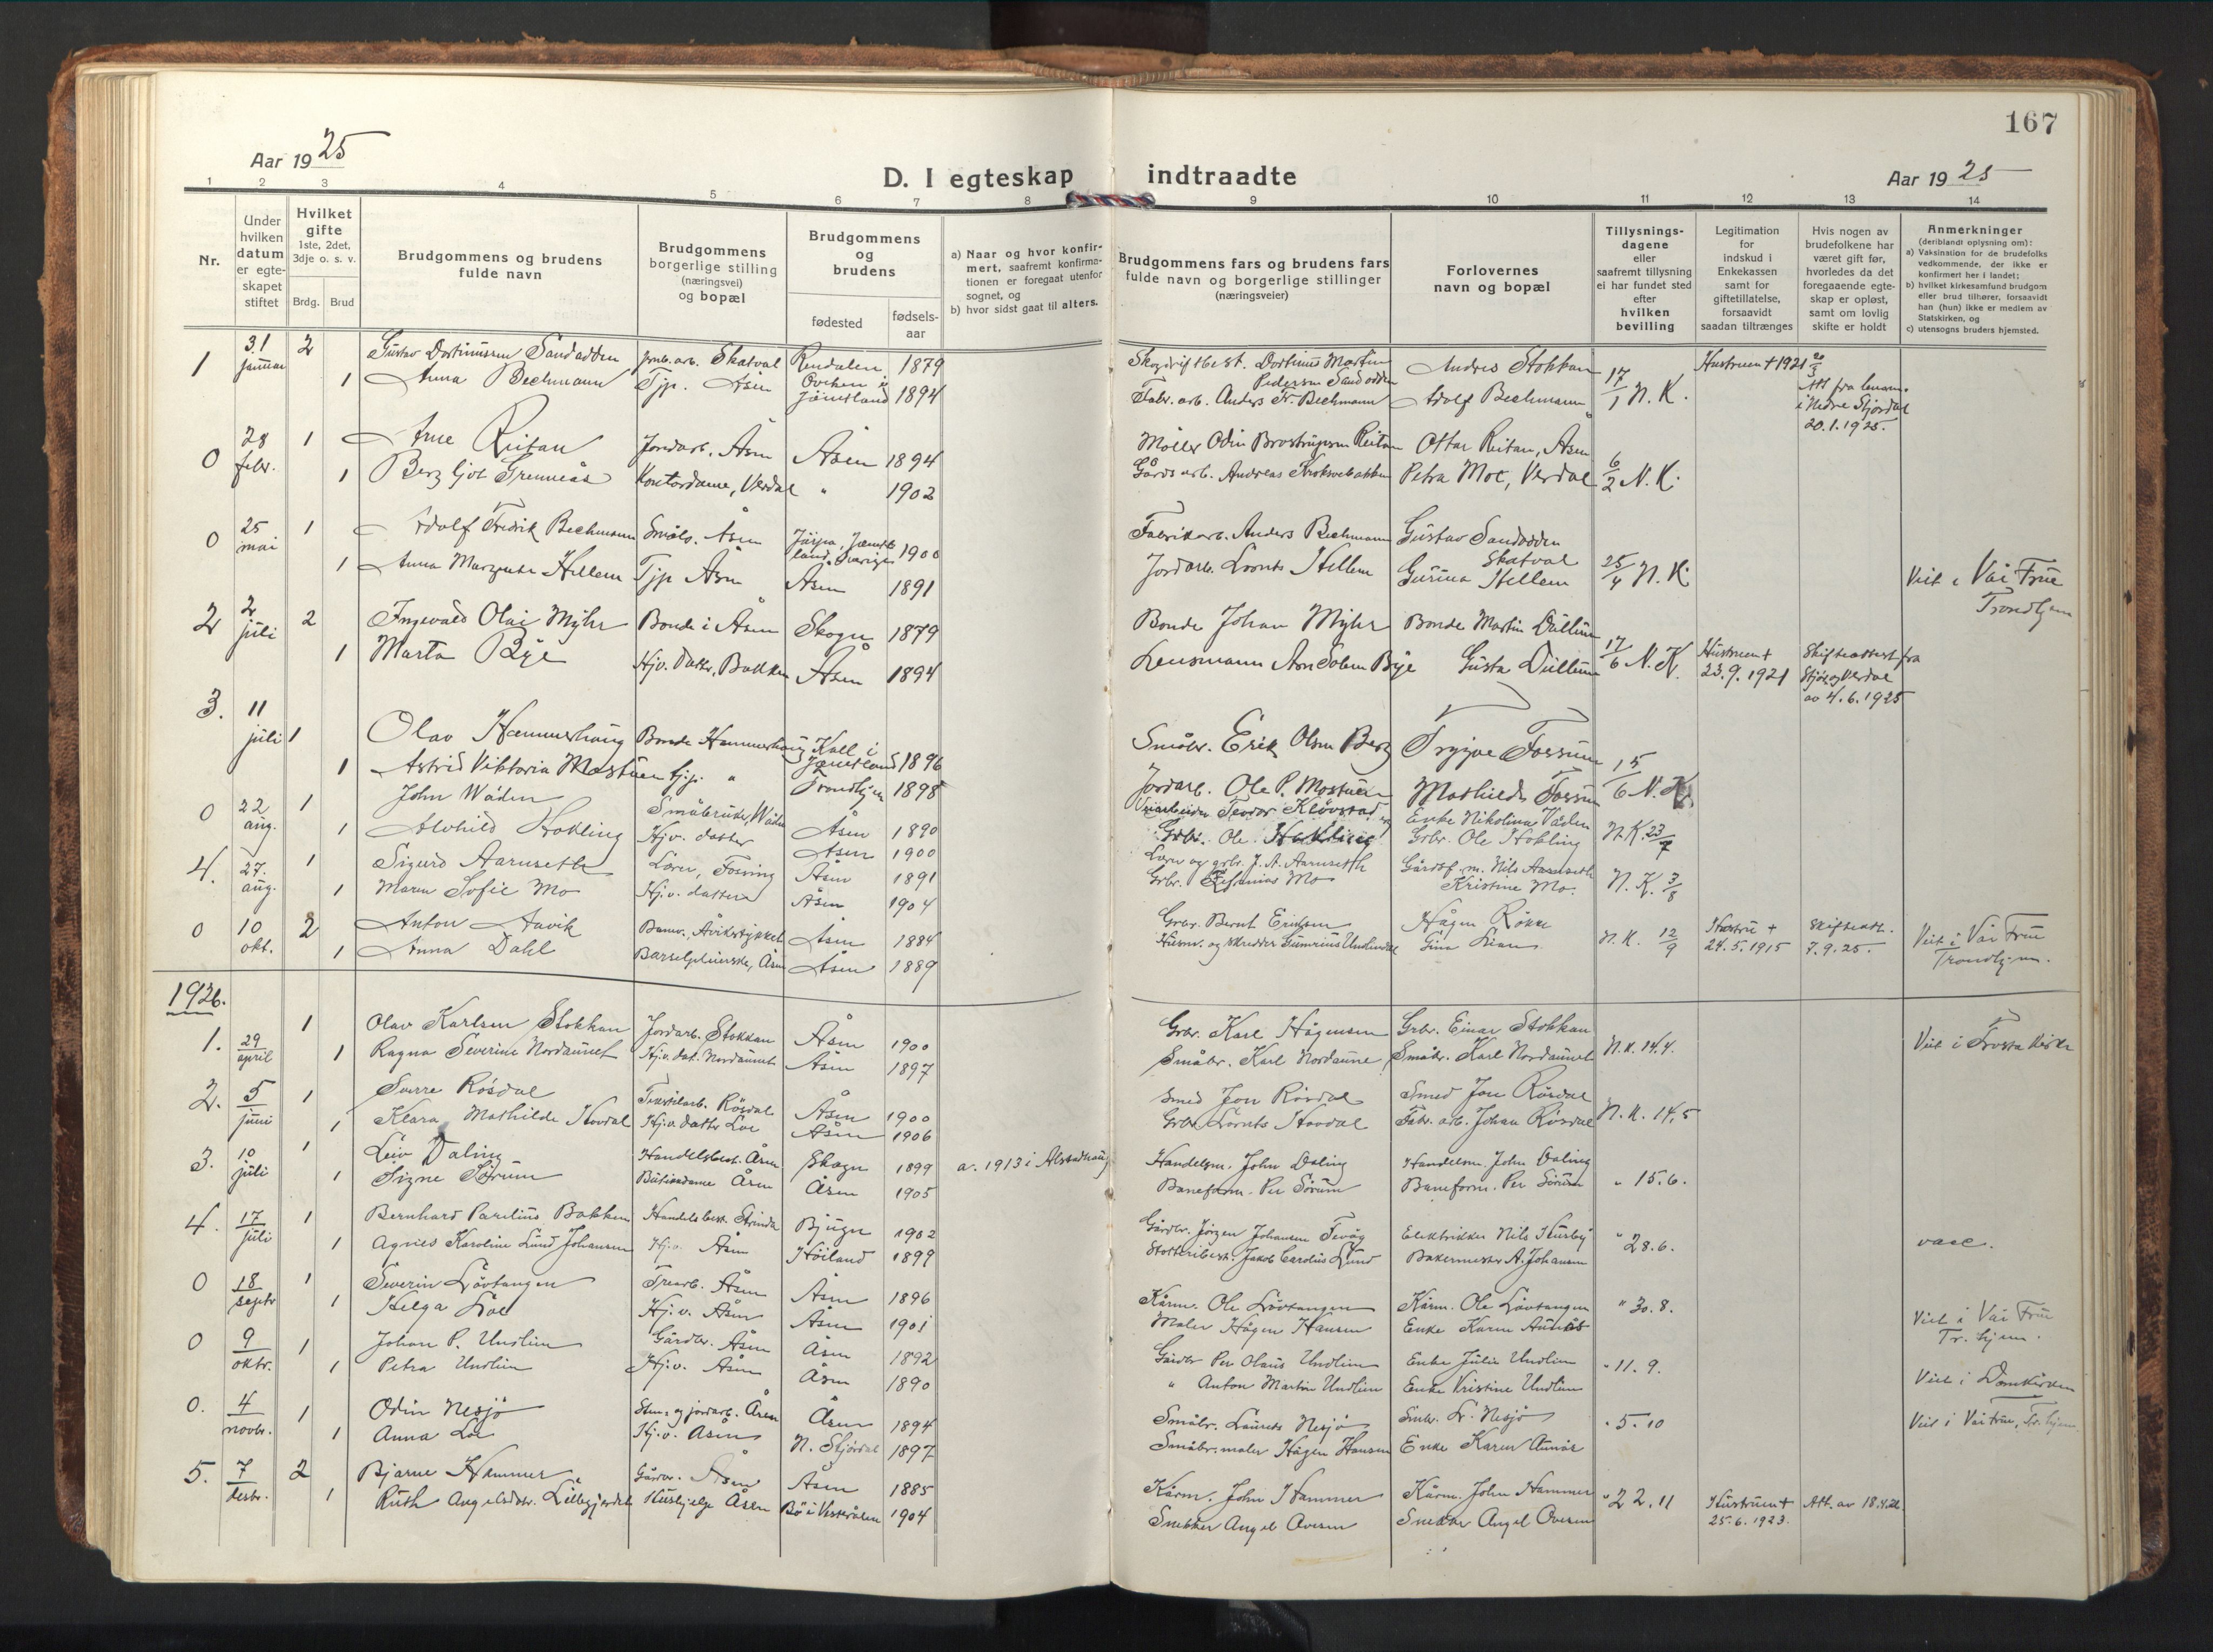 167
Aar 1925
D. I egteskap indtraadte
Aar 1925
1 2 3 4 5 6 7 8 9 10 11 12 13 14
Nr.
Under hvilken datum er egteskapet stiftet
Hvilket gifte 1ste, 2det, 3dje o. s. v.
Brdg. Brud
Brudgommens og brudens fulde navn
Brudgommens borgerlige stilling (næringsvei) og bopæl
Brudgommens og brudens
fødested
fødsels-aar
a) Naar og hvor konfirmert, saafremt konfirmationen er foregaat utenfor sognet, og
b) hvor sidst gaat til alters.
Brudgommens fars og brudens fars fulde navn og borgerlige stillinger (næringsveier)
Forlovernes navn og bopæl
Tillysningsdagene eller saafremt tillysning ei har fundet sted efter hvilken bevilling
Legitimation for indskud i Enkekassen samt for giftetillatelse, forsaavidt saadan tiltrænges
Hvis nogen av brudefolkene har været gift før, hvorledes da det foregaaende egteskap er opløst, samt om lovlig skifte er holdt
Anmerkninger (deriblandt oplysning om):
a) Vaksination for de brudefolks vedkommende, der ikke er konfirmert her i landet;
b) hvilket kirkesamfund brudgom eller brud tilhører, forsaavidt han (hun) ikke er medlem av Statskirken, og
c) utensogns bruders hjemsted.
1 31 januar 2 Gustav Dortinussen Sandodden Skatval Rendalen 1879 Dortinus Martin Pedersen Sandodden Andres Stokkan 17/1 N. K. Hustruen + 1921 20/3
1 Anna Bechmann Tjp. Åsen Oviken i Jämtland 1894 Fabr. arb. Anders Fr. Bechmann Adolf Bechmann Att fra lensm. i Nedre Stjørdal 20.1.1925.
0 28 febr. 1 Arne Reitan Jordarb. Åsen Åsen 1894 Møller Odin Brostrupsen Reitan Ottar Reitan, Åsen 6/2 N. K.
1 Bergljot Grenneås Kontordame, Verdal " 1902 Gårdsarb. Andreas Petra Moe, Verdal
0 25 mai 1 Adolf Fredrik Bechmann Småbr. Åsen Järpa, Jämtland, Sverige 1900 Fabrikarb. Anders Bechmann Gustav Sandodden Skatval 25/4 N. K.
1 Anna Margrete Hellem Tjp Åsen Åsen 1891 Jordarb. Lornts Hellem Gurina Hellem Viet i Vår Frue Trondhjem
2 2 juli 2 Ingevald Olai Myhr Bonde i Åsen Skogn 1879 Bonde Johan Myhr Bonde Martin Dullum 17/6 N. K. Hustruen + 23.9.1921 Skifteattest fra Stjør og Verdal av 4.6.1925
1 Marta Bye Hjv. datter, Bakken Åsen 1894 Lensmann Arn Solem Bye Gusta Dullum
3. 11 juli 1 Olav Hammerhaug Bonde Hammerhaug Kall i Jämtland 1896 Småbr. Erik Olsen Berg Trygve Fossum 15/6 N. K.
1 Astrid Viktoria Mostuen tjp. " Trondhjem 1898 Jordarb. Ole P. Mostuen Mathilde Fossum
0 22 aug. 1 John Wåden Småbruker, Wåden Åsen 1890 Teodor Kløvstad Enke Nikolina Våden N. K. 23/7
1 Alvhild Hokling Hjv. datter Åsen 1900 Grbr. Ole Hokling Grbr. Ole Hokling
4. 27. aug. 1 Sigurd Aarnseth Lærer, Fosning Åsen 1891 Lærer og grbr. J. A. Aarnseth Nils Aarnseth N. K. 3/8
1 Maren Sofie Mo Hj.v. datter Åsen 1904 Grbr. Zefanias Mo Kristine Mo.
0 10 okt. 2 Anton Aavik Banev., Åvikstykket Åsen 1884 Grbr. Bernt Eridsen Hågen Røkke N. K. 12/9 Hustru + 24.5.1915 Skifteatt. 7.9.25. Viet i Vår Frue Trondhjem.
1 Anna Dahl Barselpleierske, Åsen Åsen 1889 Husm. og skredder Gunerius Undlien Gina Lian
1926.
1. 29 april 1 Olav Karlsen Stokkan Jordarb. Stokkan Åsen 1900 Grbr. Karl Hågensen Grbr. Einar Stokkan N.K. 14/4. Viet i Frosta kirke
1 Ragna Severine Nordaunet Hj.v. dat. Nordaunet Åsen 1897 Småbr. Karl Nordaune Småbr. Karl Nordaunet
2. 5 juni 1 Sverre Rösdal Tekstilarb. Rösdal Åsen 1900 Smed Jon Rösdal Smed Jon Rösdal N. K. 14/5
1 Klara Mathilde Hovdal Hj.v. datter Loe Åsen 1906 Grbr. Lornts Hovdal Fabr. arb. Johan Rösdal
3. 10 juli 1 Leiv Daling Handelsbest. Åsen Skogn 1899 a. 1913 i Alstadhaug Handelsm. John Daling Handelsm. John Daling " 15.6.
1 Signe Sørum Butikdame Åsen Åsen 1905 Baneform. Per Sörum Baneform. Per Sörum
4. 17 juli 1 Bernhard Parelius Bakken Handelsbest. Strinda Bjugn 1902 Gårdbr. Jörgen Johansen Tevåg Elektriker Nils Husby " 28.6. vacc.
1 Agnes Karoline Lund Johansen Hj.v. Åsen Höiland 1899 Jakob Carolius Lund Bakermester A. Johansen
0 18 septr 1 Severin Lövtangen Trearb. Åsen Åsen 1896 Kårm. Ole Lövtangen Kårm. Ole Lövtangen " 30.8. Viet i Vår Frue Tr.hjem.
1 Helga Loe Hj.v. Åsen Åsen 1901 Maler Hågen Hansen Enke Karen Aunås
0 9 oktr. 1 Johan P. Undlien Gårdbr. Åsen Åsen 1892 Gårdbr Per Olaus Undlien Enke Julie Undlien " 11.9. Viet i Domkirken
1 Petra Undlien Hj.v. Åsen Åsen 1890 " Anton Martin Undlien Enke Kristine Undlien
0. 4 novbr. 1 Odin Nesjö Sten- og jordarb. Åsen Åsen 1894 Småbr. Laurits Nesjö Småbr. L. Nesjö " 5.10 Viet i Vår Frue, Tr.hjem
1 Anna Loe Hj.v. Åsen N. Stjørdal 1897 Småbr. maler Hågen Hansen Enke Karen Aunås
5. 7 desbr. 2 Bjarne Hammer Gårdbr. Åsen Åsen 1885 Kårm. John Hammer Kårm. John Hammer " 22.11 Hustruen + 25.6.1923. Att. av
1 Ruth Angelsdtr. Lillegjerdet Hushjelp Åsen Bö i Vesterålen 1904 Snekker Angel Oversen Snekker Angel Oversen